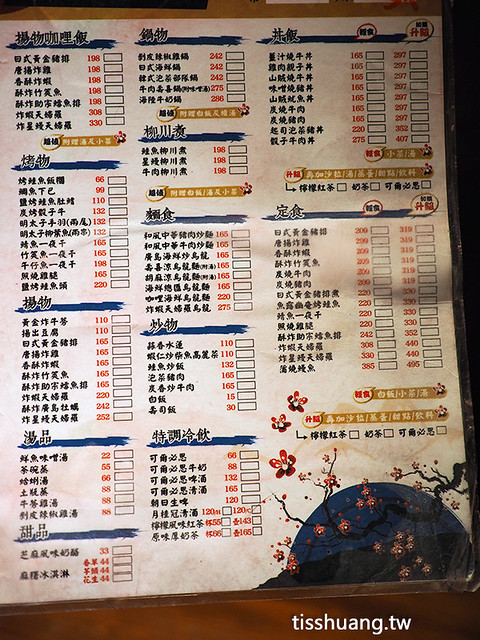 揚物咖哩飯
日式黃金豬排 198
唐揚炸雞 198
香酥炸蝦 198
酥炸竹筴魚 198
酥炸助宗鱈魚排 198
炸蝦天婦羅 308
炸星鰻天婦羅 330
超值 附贈湯及小菜
烤物
烤鮭魚飯糰 66
鯛魚下巴 99
鹽烤鮭魚肚鰭 110
炭烤骰子牛 132
明太子手羽(兩尾) 132
明太子柳葉魚(兩串) 132
鯖魚一夜干 165
竹筴魚一夜干 165
午仔魚一夜干 198
照燒雞腿 165
鹽烤鮭魚頭 220
揚物
黃金炸牛蒡 110
揚出豆腐 110
日式黃金豬排 165
唐揚炸雞 165
香酥炸蝦 165
酥炸竹筴魚 165
酥炸助宗鱈魚排 165
炸蝦天婦羅 220
酥炸廣島牡蠣 242
炸星鰻天婦羅 252
湯品
鮮魚味噌湯 22
茶碗蒸 55
蛤蜊湯 66
土瓶蒸 88
牛蒡雞湯 88
剝皮辣椒雞湯 88
甜品
芝麻風味奶酪 33
麻糬冰淇淋 香草 44
芋頭 44
花生 44
鍋物
剝皮辣椒雞鍋 242
日式海鮮鍋 242
韓式泡菜部隊鍋 242
牛肉壽喜鍋(附味噌湯) 275
海陸牛奶鍋 286
超值 附贈白飯及烏龍
柳川煮
鮭魚柳川煮 165
星鰻柳川煮 165
牛肉柳川煮 165
超值 附贈白飯/湯及小菜
麵食
和風中華豬肉炒麵 165
和風中華牛肉炒麵 165
廣島海鮮炒烏龍 165
壽喜涼烏龍麵(附湯) 165
胡麻涼烏龍麵(附湯) 165
海鮮總匯烏龍麵 165
咖哩海鮮烏龍麵 220
炸蝦天婦羅烏龍 275
炒物
蒜香水蓮 110
蝦仁炒柴魚高麗菜 110
鮭魚炒飯 132
泡菜豬肉 165
炭香炒牛肉 165
白飯 15
壽司飯 30
特調冷飲
可爾必思 66
可爾必思牛奶 88
可爾必思啤酒 132
可爾必思清酒 165
朝日生啤 120
月桂冠清酒 120/ 220
檸檬風味紅茶 杯55 壺143
原味厚奶茶 杯66 壺165
丼飯
輕食 加價升級
薑汁燒牛丼 165 297
雞肉親子丼 165 297
山賊燒牛丼 165 297
味噌燒豬丼 165 297
山賊魷魚丼 165 297
炭燒牛肉 165 297
炭燒豬肉 165 297
起司泡菜豬丼 220 352
骰子牛肉丼 275 407
輕食 小菜/湯
升級 再加沙拉/湯/蒸蛋/甜點/飲料
檸檬紅茶 奶茶 可爾必思
定食
輕食 加價升級
日式黃金豬排 209 319
唐揚炸雞 209 319
香酥炸蝦 209 319
酥炸竹筴魚 209 319
炭燒牛肉 209 319
炭燒豬肉 209 319
日式黃金豬排煮 220 330
220 330
鯖魚一夜干 220 330
照燒雞腿 220 330
酥炸助宗鱈魚排 242 352
炸蝦天婦羅 308 440
炸星鰻天婦羅 330 440
蒲燒鰻魚 385 495
輕食 白飯/小菜/湯
升級 再加沙拉/蒸蛋/甜點/飲料
檸檬紅茶 奶茶 可爾必思
tisshuang.tw